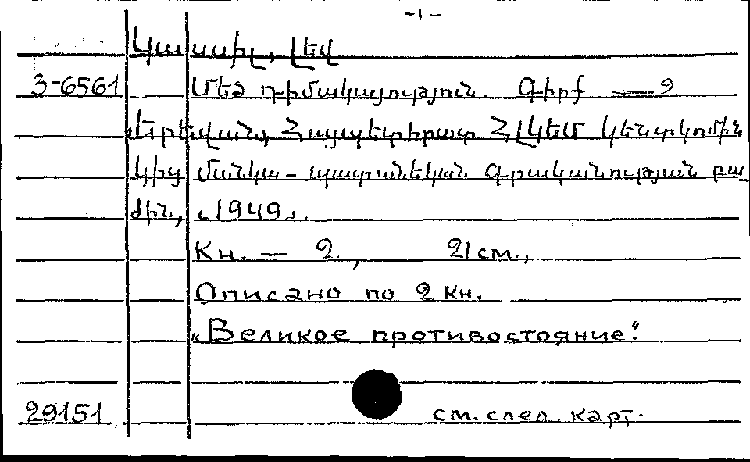 -1-
Կասիլ, Լեվ
3-6561 Մեծ դիմակայություն. Գիրք — 2
Երեվան, Հայպետհրատ ՀԼԿԵՄ կենտկոմին
կից մանկա-պատանեկան գրականության բա
ժին, «1949».
Кн. — 2., 21см.,
Описано по 2 кн.
„Великое противостояние“.
29151 см. след. карт.